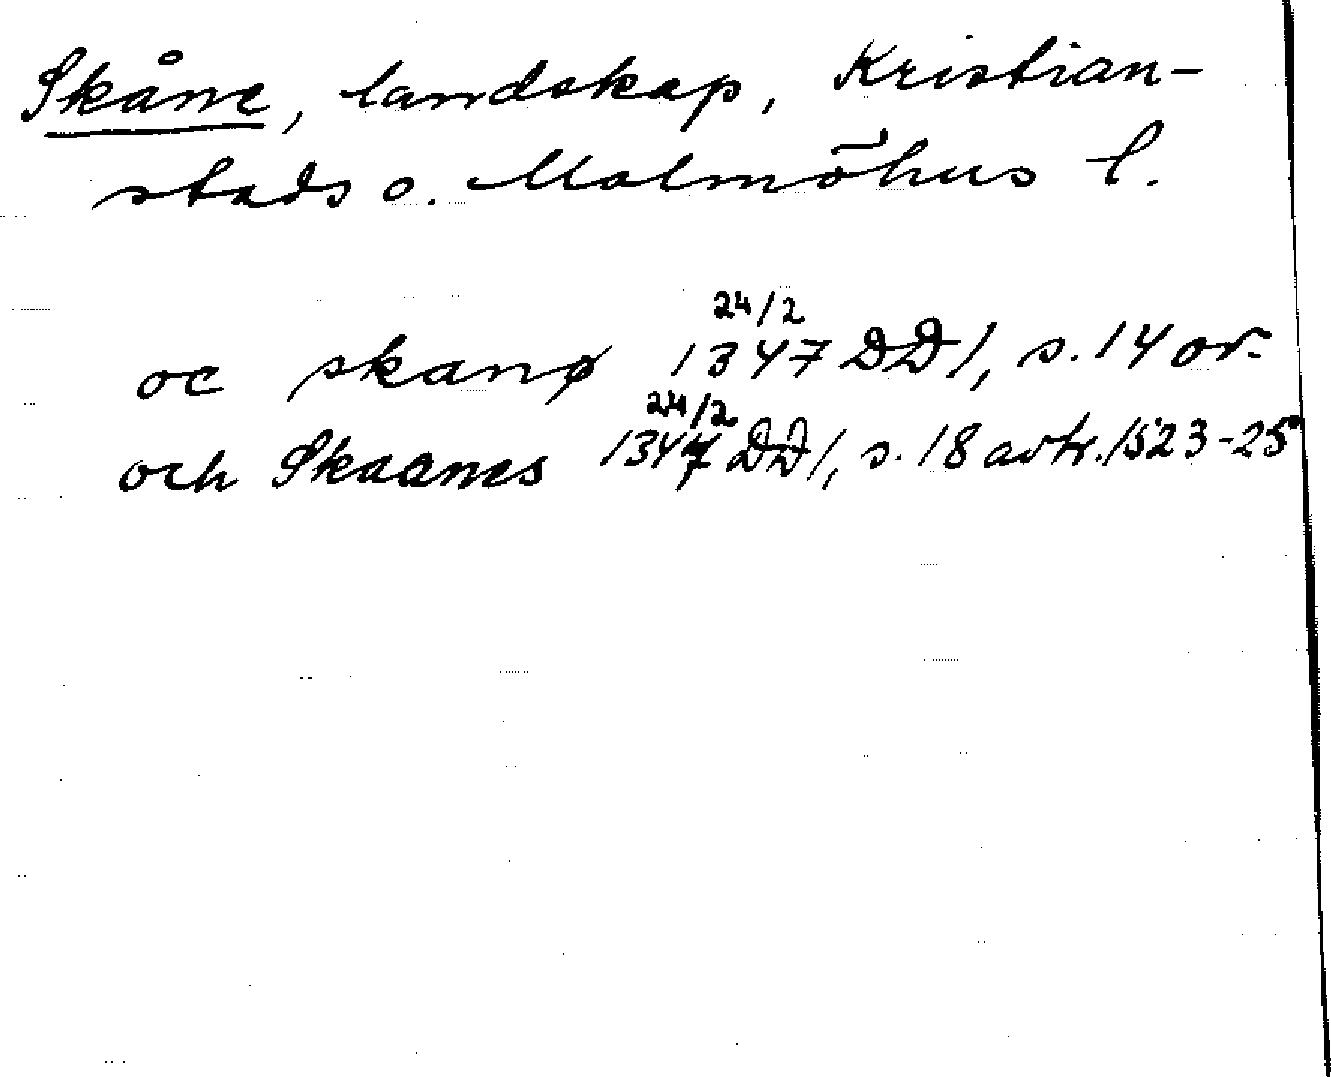 Skåne, landskap, Kristian-
stads o. Malmöhus l.
24/2
oc skanø 1347 DD1, s. 14 or.
24/2
och Skaanes 1347 DD1, s. 18 avtr. 1523-25